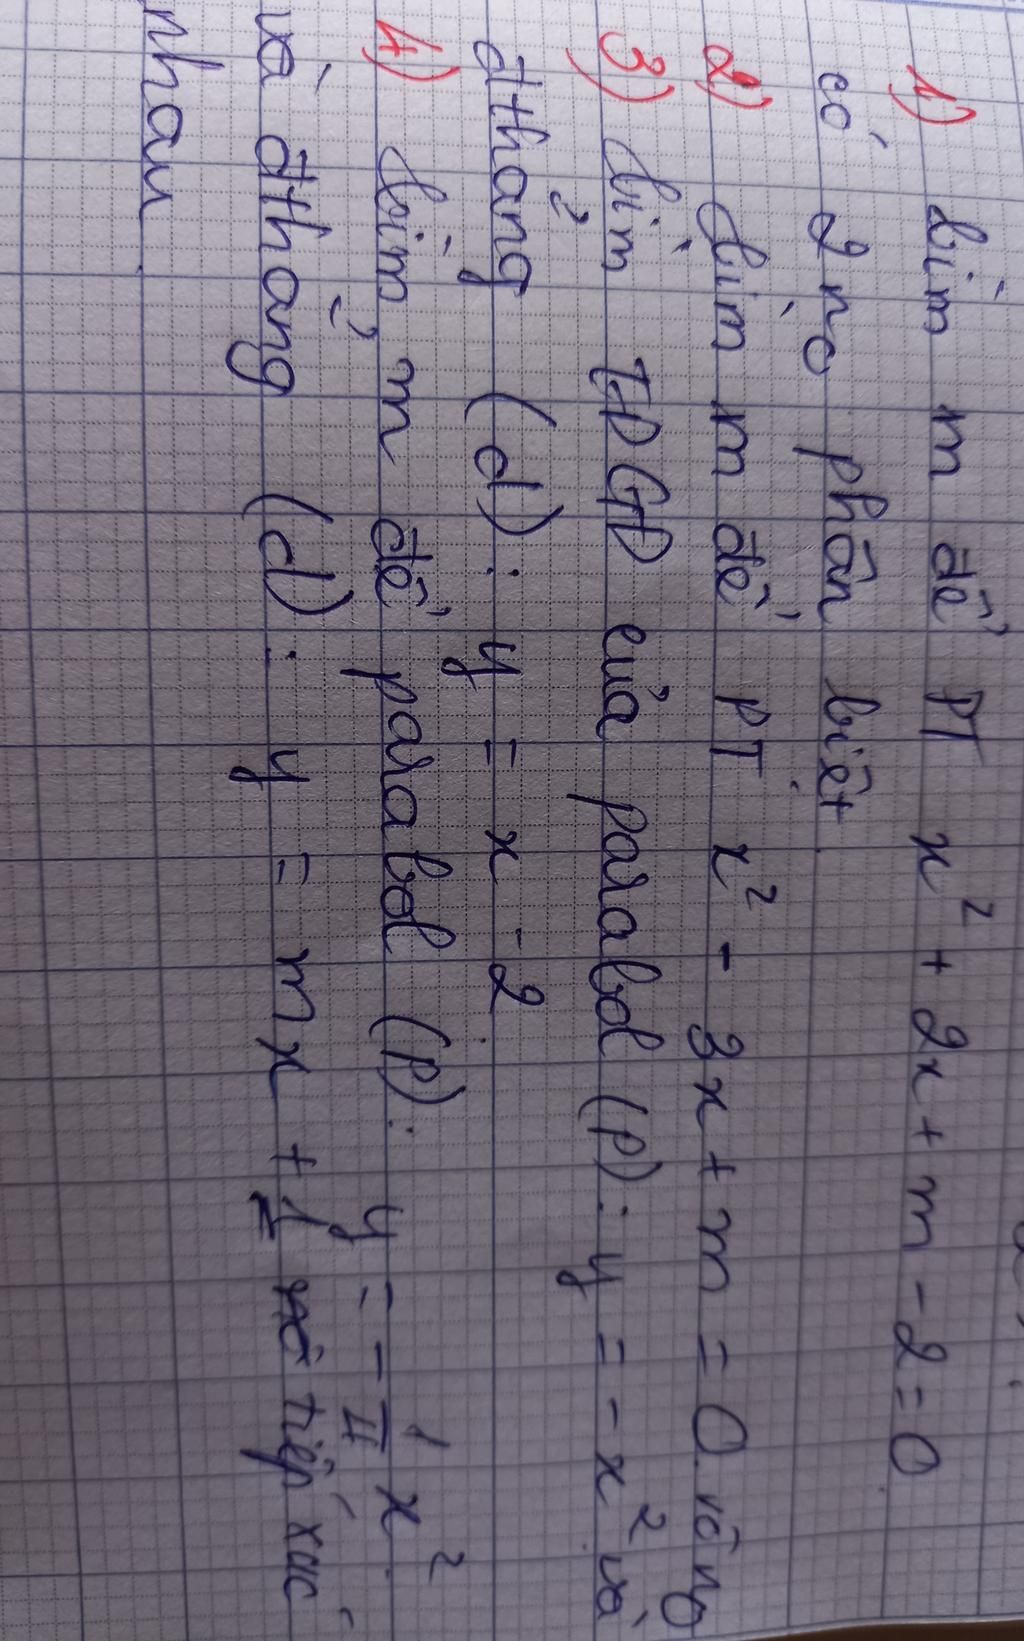 1) Tìm m để PT x² + 2x + m - 2 = 0
có 2 no phân biệt.
2) Tìm m để PT x² - 3x + m = 0 vô no
3) Tìm TĐGĐ của parabol (P): y = -x² và
đthẳng (d): y = x - 2
4) Tìm m để parabol (P): y = -1/4 x²
và đthẳng (d): y = mx + 1 tiếp xúc
nhau